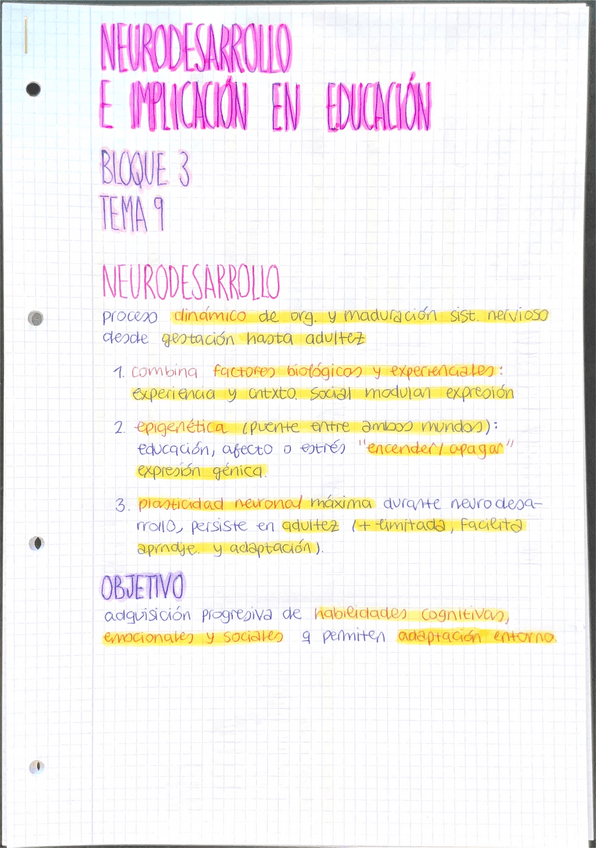 NEURODESARROLLO
E IMPLICACIÓN EN EDUCACIÓN
BLOQUE 3
TEMA 9
NEURODESARROLLO
proceso dinámico de org. y maduración sist. nervioso
desde gestación hasta adultez
1. combina factores biológicos y experienciales:
experiencia y cntxto. social modulan expresión
2. epigenética (puente entre ambos mundos):
educación, afecto o estrés "encender/apagar"
expresión génica.
3. plasticidad neuronal máxima durante neurodesa-
rrollo, persiste en adultez (+ limitada, facilita
aprndje. y adaptación).
OBJETIVO
adquisición progresiva de habilidades cognitivas,
emocionales y sociales q permiten adaptación entorno.